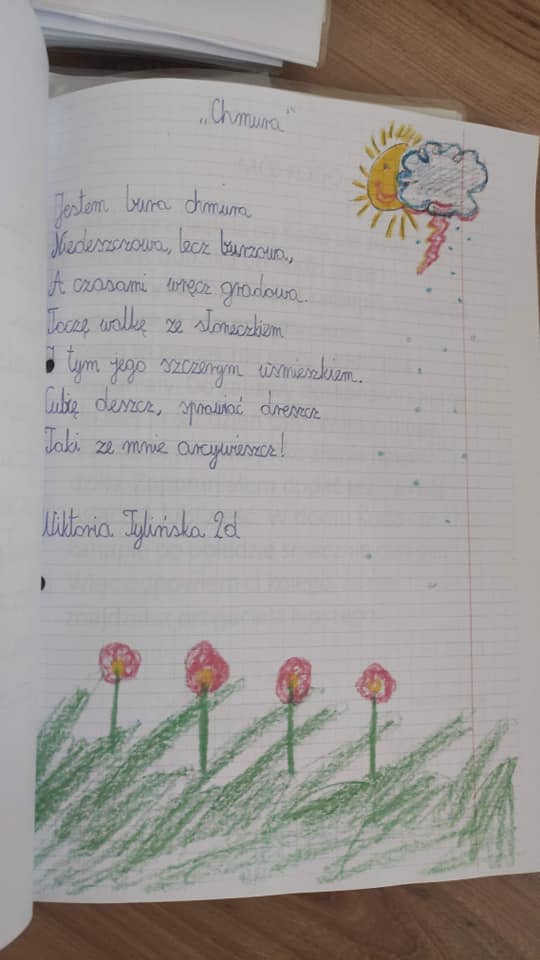 „Chmura"
Jestem bura chmura
Niedeszczowa, lecz burzowa,
A czasami wręcz gradowa.
Toczę walkę ze słoneczkiem
I tym jego szczerym uśmieszkiem.
Lubię deszcz, sprawiać dreszcz
Taki ze mnie arcywieszcz!
Wiktoria Tylińska 2d